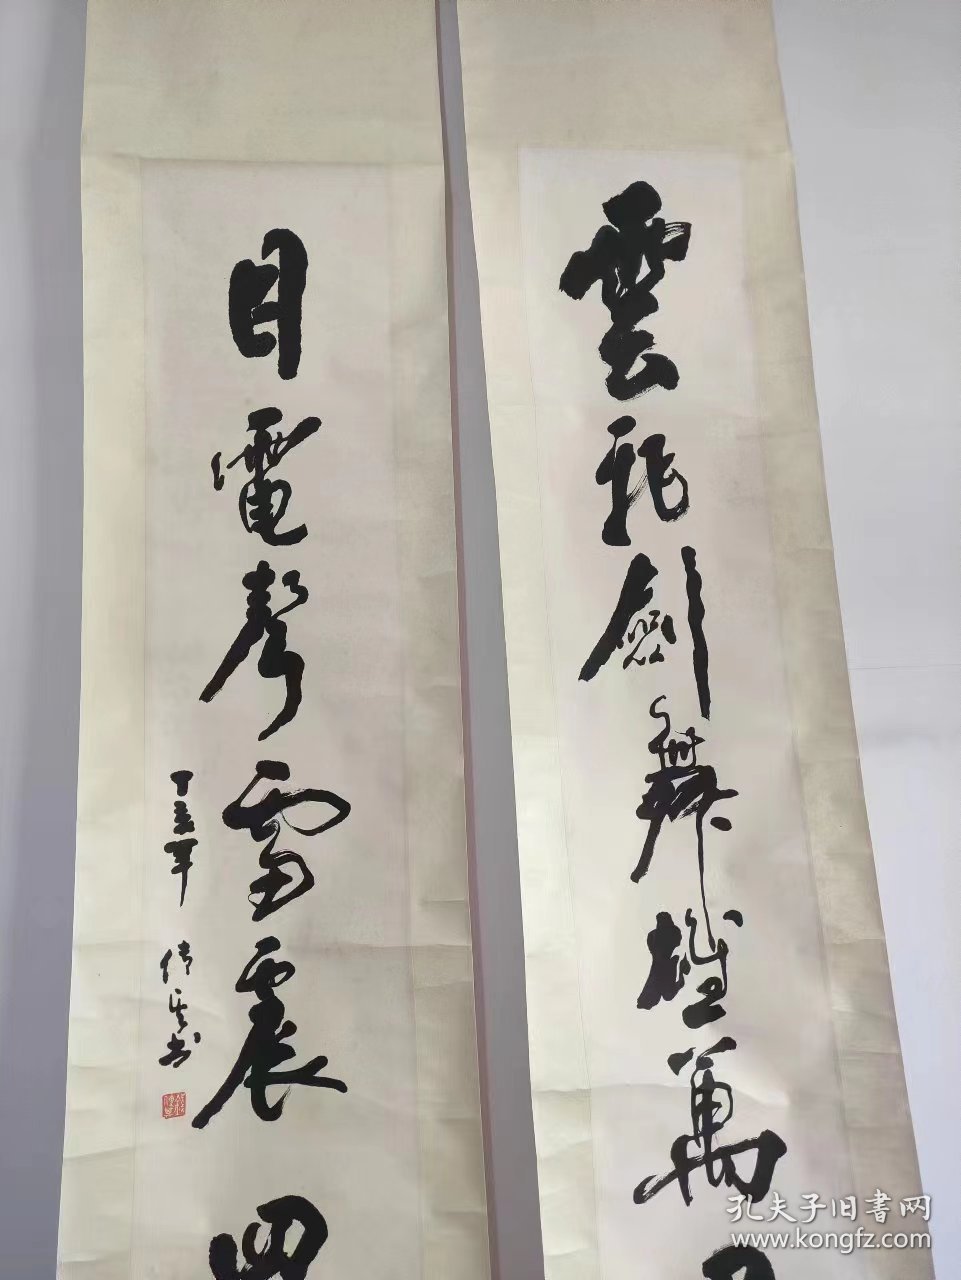 雲飛劍舞雄萬
目電聲雷震四
丁亥年
书
孔夫子旧書网
www.kongfz.com